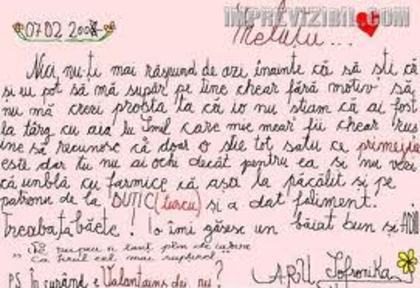 IMPREVIZIBIL.COM
07.02.2008
Meluțu...
Nici nu-ți mai răspund de azi înainte că să sti că
și eu pot să mă supăr pe tine chear fără motiv să
nu mă crezi proastă la că io nu știam că ai fost
la târg cu aia lu Ionel care mie mear fii chear rus
ine să recunosc că doar o știe tot satu ce primejdia
este dar tu nu ai ochi decât pentru ea și nu vezi
că umblă cu farmice că așa la păcălit și pe
patronu de la BUTIC (turcu) și a dat faliment.
Treaba ta băete! Io îmi găsesc un băiat bun și
plin de iubire
Ca
P.S. În curând e Valantains dei, nu?
Sofronika